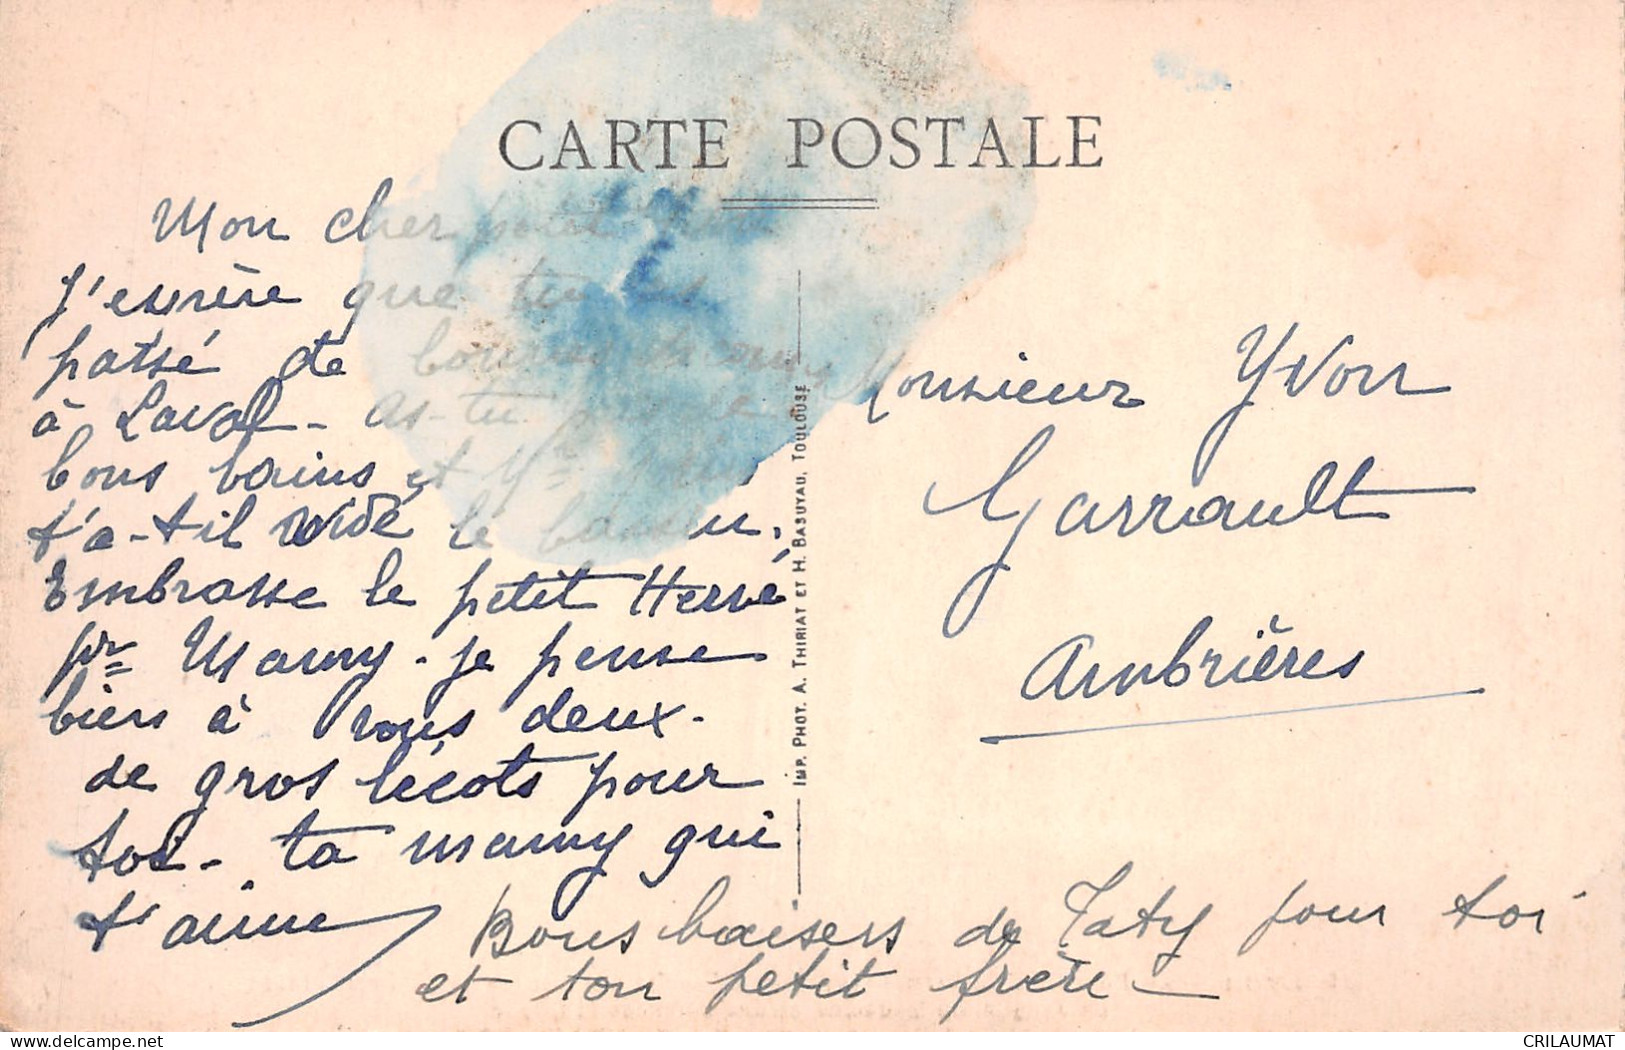 CARTE POSTALE
Mon cher petit
J'espère que tu as
passé de bonnes
à Laval - as-tu
bons bains et Mr
t'a-t-il vidé le bassin.
Embrasse le petit Hervé
pr Mamy - je pense
bien à vous deux.
de gros bécots pour
toi - ta mamy qui
t'aime
Bons baisers de Taty pour toi
et ton petit frère -
Monsieur Yvon
Garrault
Ambrières
IMP. PHOT. A. THIRIAT ET H. BASUYAU, TOULOUSE
CRILAUMAT